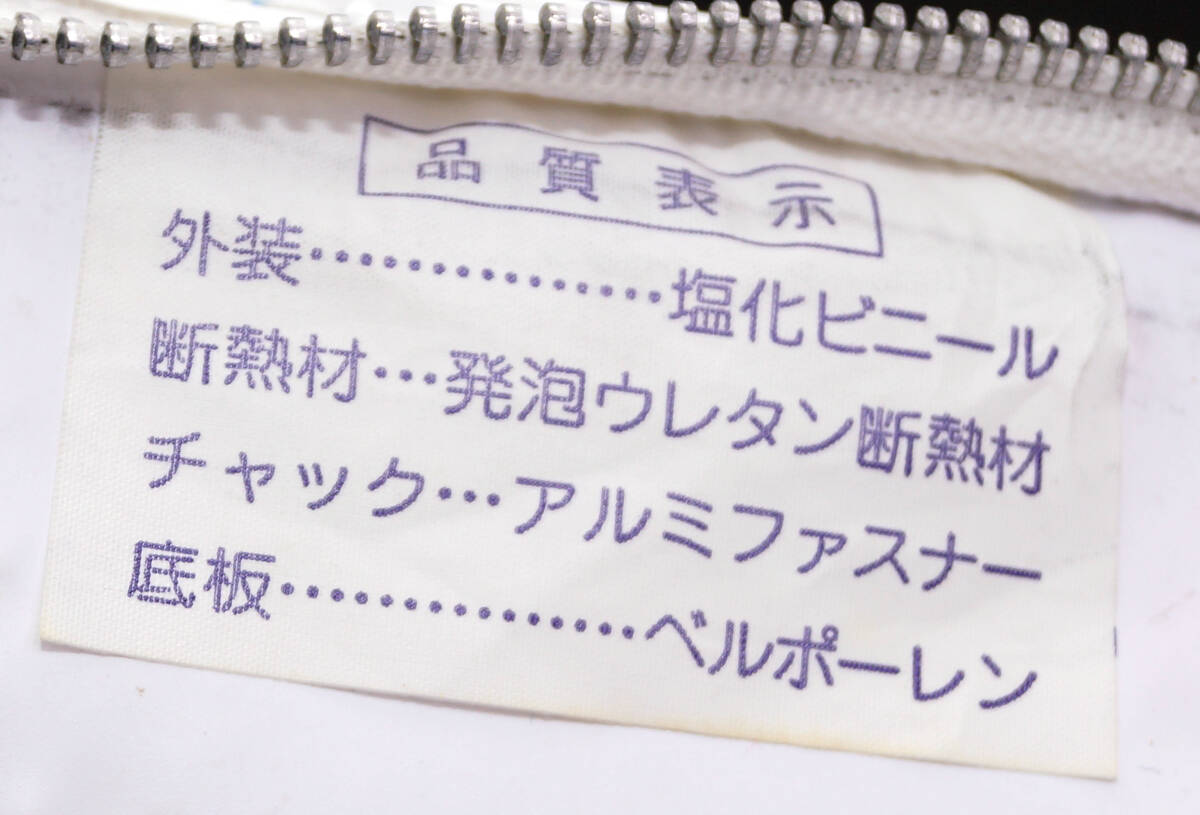 品質表示
外装……………塩化ビニール
断熱材…発泡ウレタン断熱材
チャック…アルミファスナー
底板……………ベルポーレン